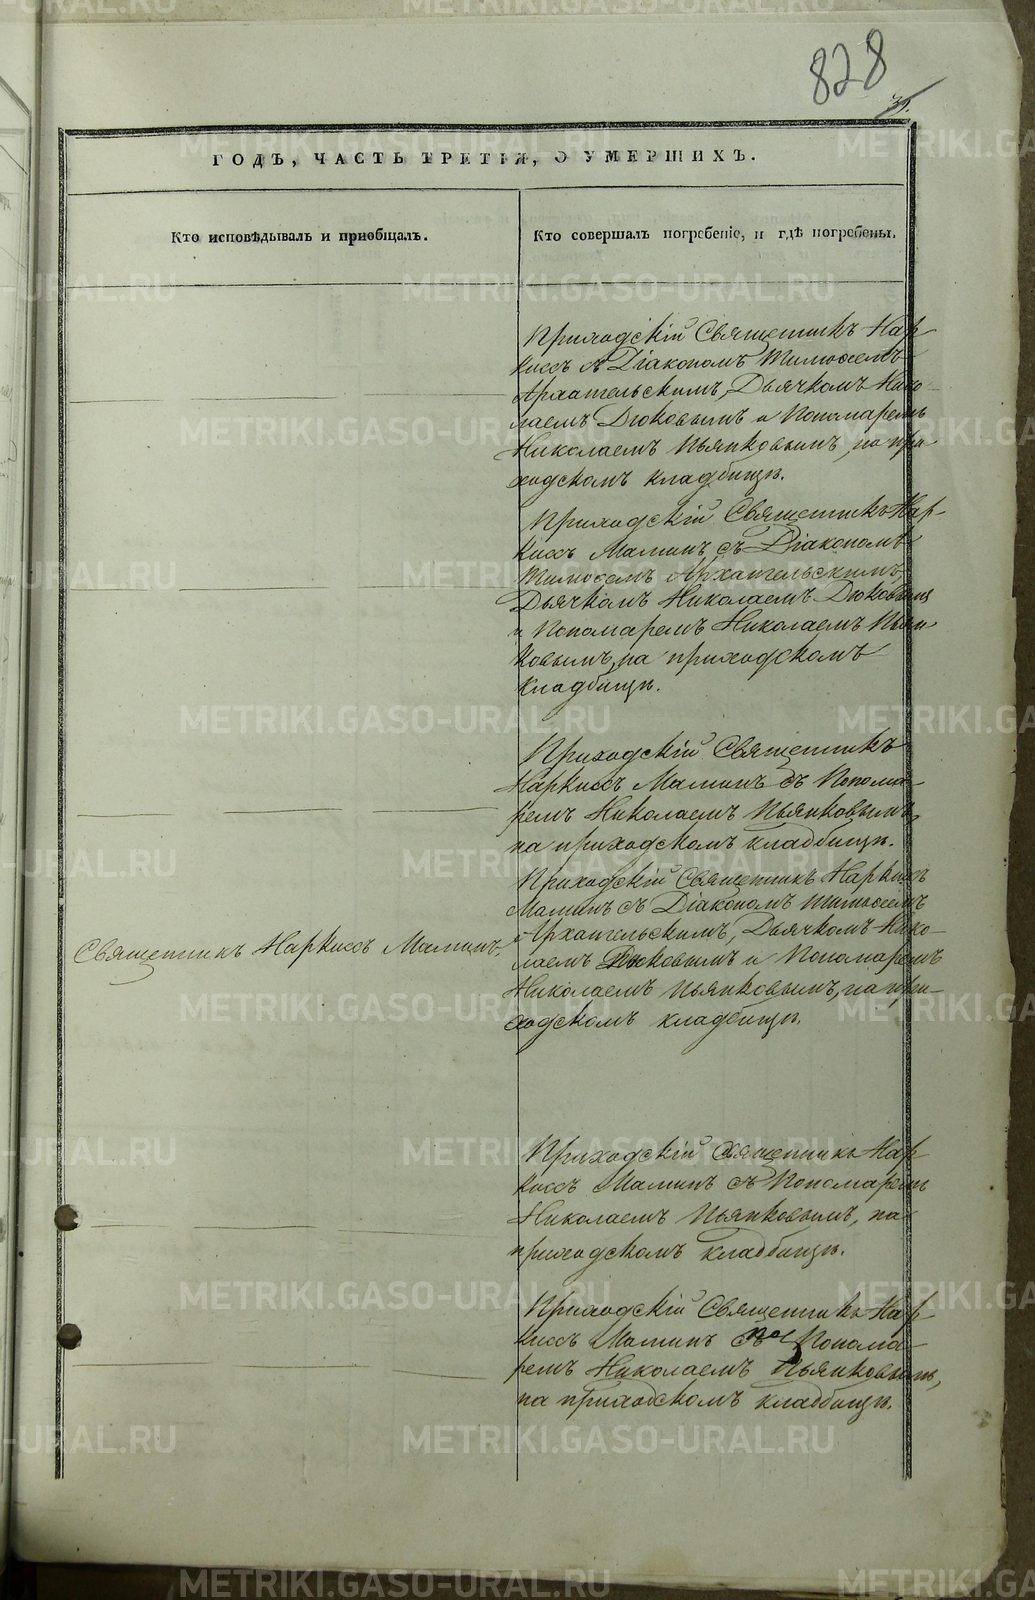 828
35.
ГОДЪ, ЧАСТЬ ТРЕТІЯ, О УМЕРШИХЪ.
Кто исповѣдывалъ и пріобщалъ.
Кто совершалъ погребеніе, и гдѣ погребены.
Приходскій Священникъ Нар-
киссъ съ Діакономъ Тимофеемъ
Архангельскимъ, Дьячкомъ Нико-
лаемъ Дюковымъ и Пономаремъ
Николаемъ Пьянковымъ, на при-
ходскомъ кладбищѣ.
Приходскій Священникъ Нар-
киссъ Маминъ съ Діакономъ
Тимофеемъ Архангельскимъ,
Дьячкомъ Николаемъ Дюковымъ
и Пономаремъ Николаемъ Пьян-
ковымъ, на приходскомъ
кладбищѣ.
Приходскій Священникъ
Наркиссъ Маминъ съ Понома-
ремъ Николаемъ Пьянковымъ,
на приходскомъ кладбищѣ.
Священникъ Наркиссъ Маминъ.
Приходскій Священникъ Наркиссъ
Маминъ съ Діакономъ Тимофеемъ
Архангельскимъ, Дьячкомъ Нико-
лаемъ Дюковымъ и Пономаремъ
Николаемъ Пьянковымъ, на при-
ходскомъ кладбищѣ.
Приходскій Священникъ Нар-
киссъ Маминъ съ Пономаремъ
Николаемъ Пьянковымъ, на
приходскомъ кладбищѣ.
Приходскій Священникъ Нар-
киссъ Маминъ съ Понома-
ремъ Николаемъ Пьянковымъ,
на приходскомъ кладбищѣ.
METRIKI.GASO-URAL.RU